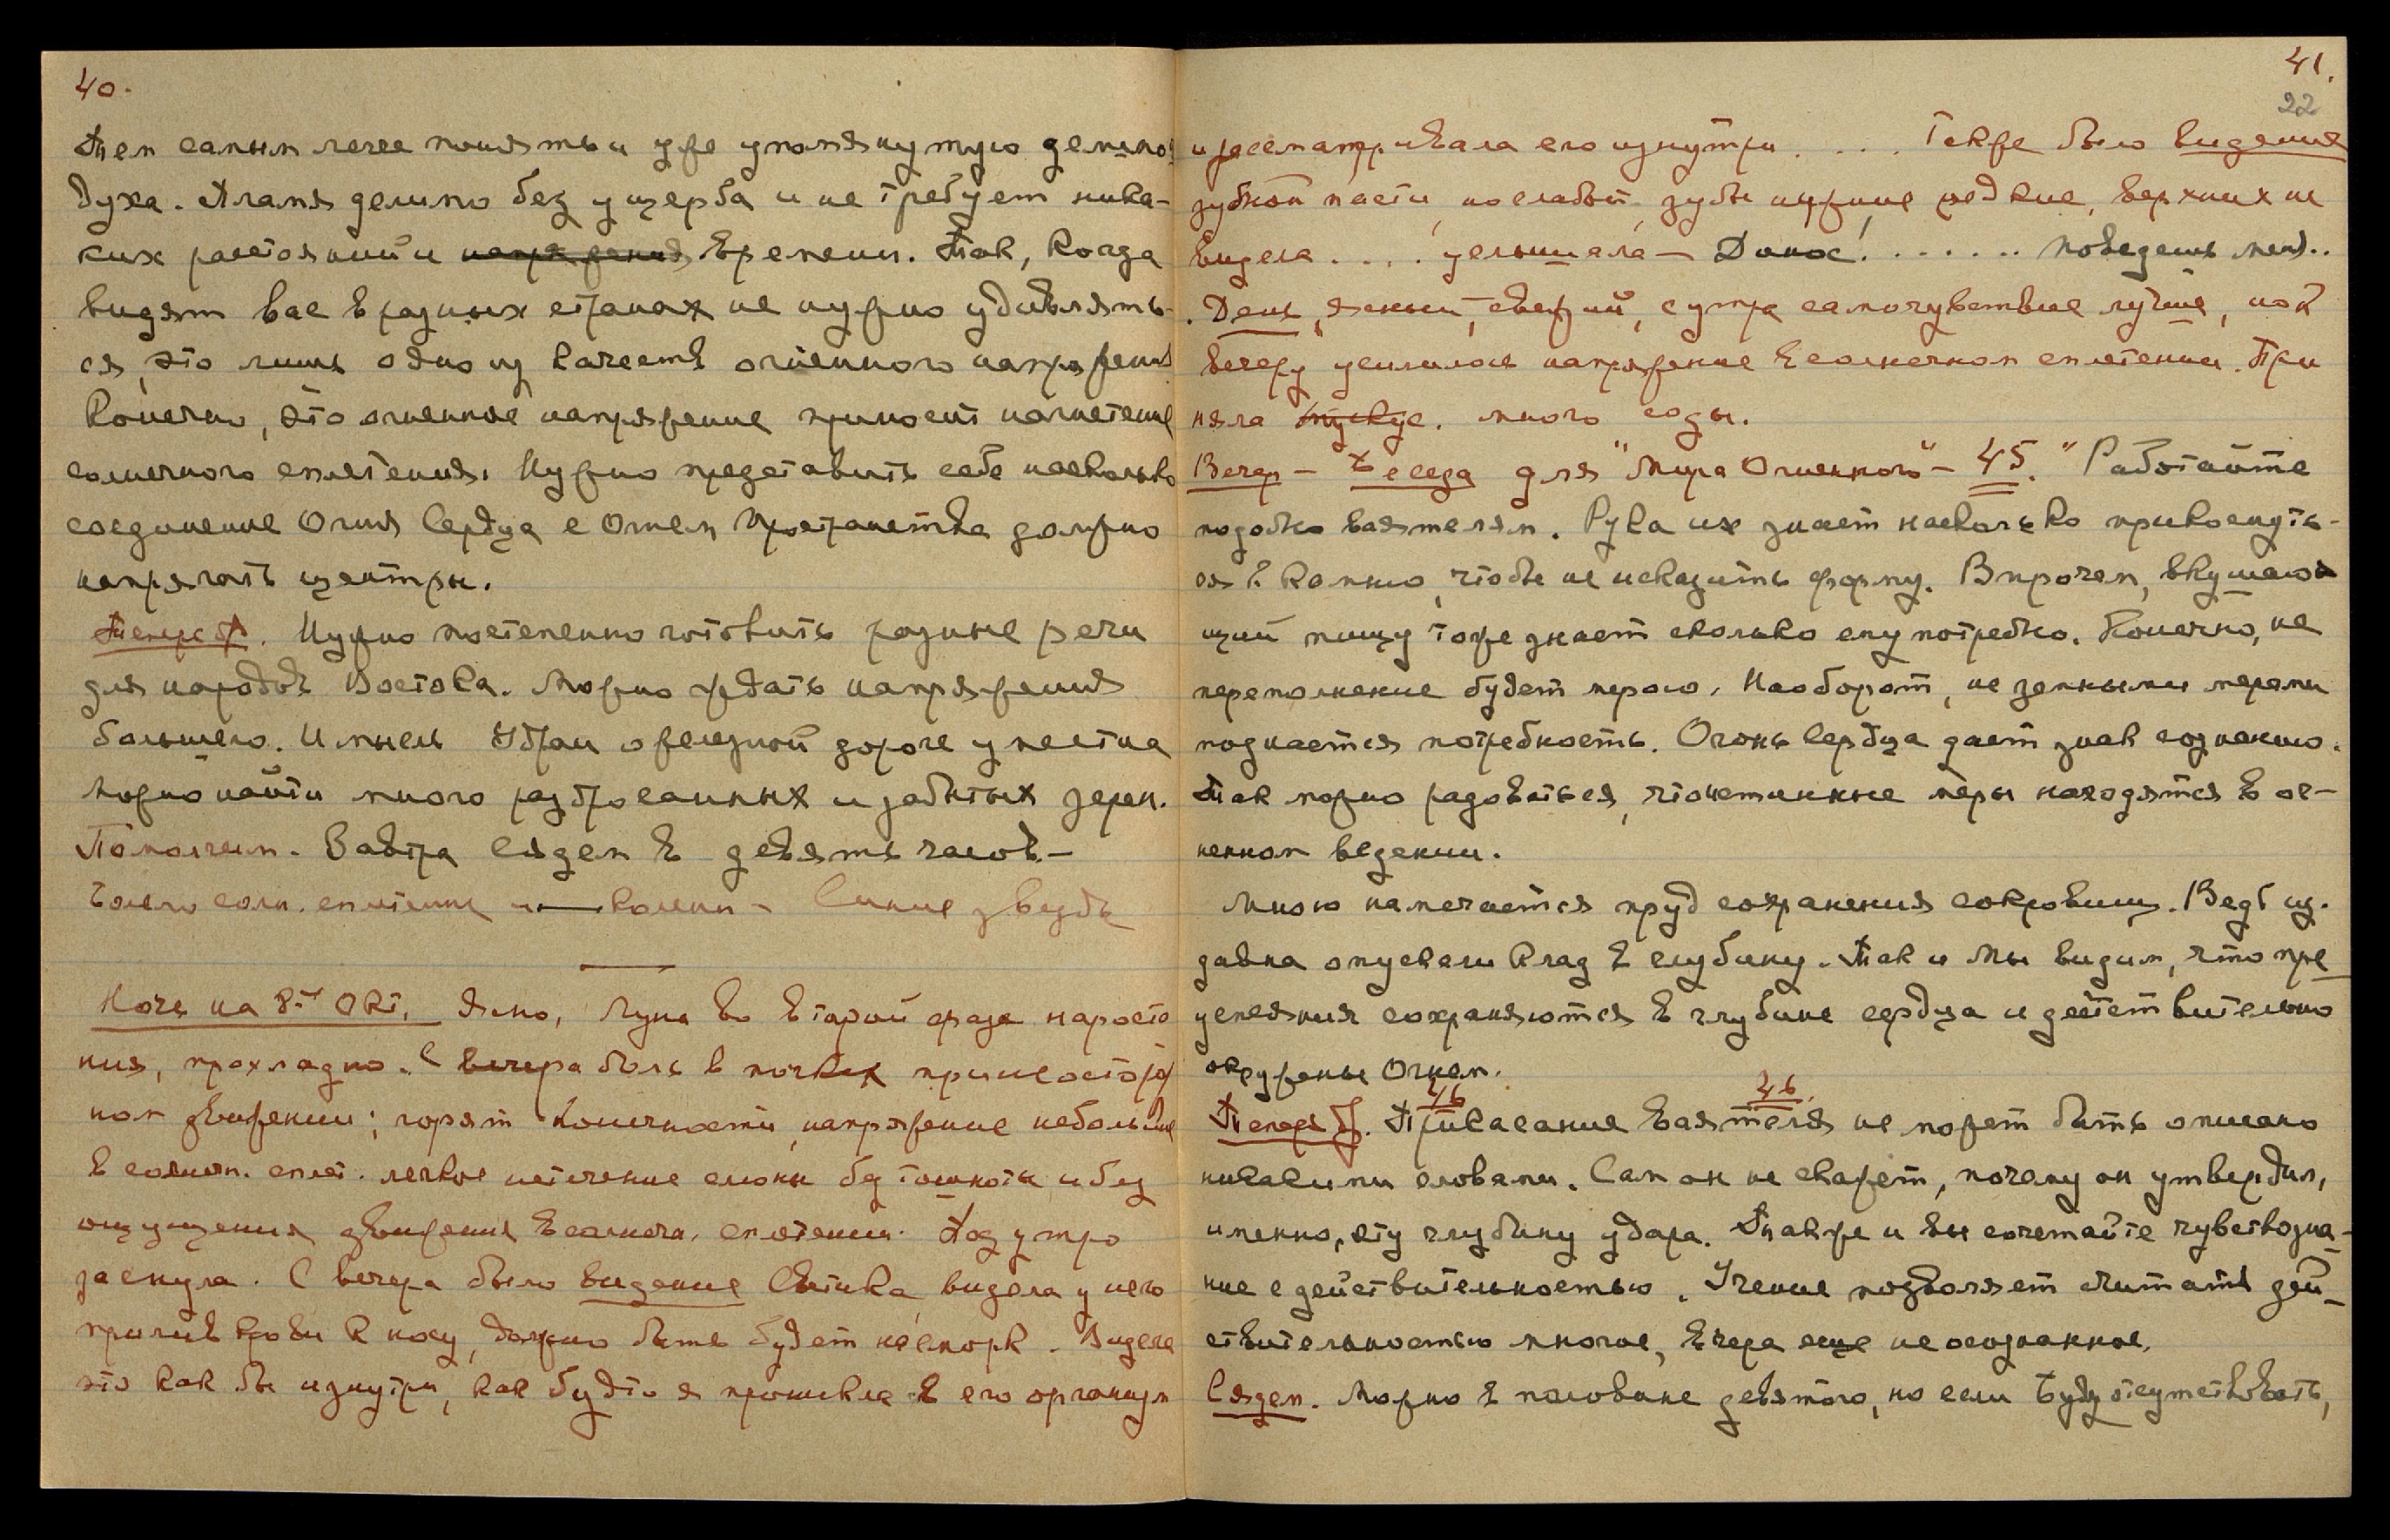 40.
Тем самым легче понять и уже упомянутую делимость
духа. Пламя делимо без ущерба и не требует ника-
ких расстояний и напряжения времени. Так, когда
видят вас в разных странах не нужно удивлять-
ся, это лишь одно из качеств огненного напряжения
Конечно, это огненное напряжение приносит нагнетение
солнечного сплетения. Нужно представить себе насколько
соединение Огня Сердца с Огнем Пространства должно
напрягать центры.
Теперь др. Нужно постепенно готовить разные речи
для народов Востока. Можно ждать напряжения
большего. И мысль о железной дороге уместна
Можно найти много разбросанных и забытых зерен.
Помолчим. Завтра сядем в девять часов. —
Болело солн. сплетение и — колени — Синие звезды
Ночь на 8-ое Окт. Ясно, Луна во второй фазе нароста
ния, прохладно. С вечера боль в почках при неосторож
ном движении; горят конечности, напряжение небольшое
в солнечн. сплет. легкое истечение слюны без тошноты и без
ощущения движения в солнечн. сплетении. Под утро
заснула. С вечера было видение Светика, видела у него
прилив крови к носу, должно быть будет насморк. Видела
это как бы изнутри, как будто я проникла в его организм
41.
22
и рассматривала его изнутри . . . . Также было видение
зубной пасти, но слабый, зубы нижние редкие, верхних не
видела . . . . услышала — Донос! . . . . . . . поведешь меня..
. День, ясный, свежий, с утра самочувствие лучше, но к
вечеру усилилось напряжение в солнечном сплетении. При
няла мускус. много соды.
Вечер — Беседа для "Мира Огненного" — 45. "Работайте
подобно ваятелям. Рука их знает насколько прикоснуть-
ся к камню, чтобы не исказить форму. Впрочем, вкушаю
щий пищу тоже знает сколько ему потребно. Конечно, не
переполнение будет мерою. Наоборот, не земными мерами
познается потребность. Огонь Сердца дает знак сознанию.
Так можно радоваться, что истинные меры находятся в ог-
ненном ведении.
Мною намечается пруд сохранения сокровищ. Ведь из-
давна опускали клад в глубину. Так и Мы видим, что пре
успеяния сохраняются в глубине сердца и действительно
окружены Огнем.
46 46.
Теперь др. Прикасание ваятеля не может быть описано
никакими словами. Сам он не скажет, почему он утвердил,
именно, эту глубину удара. Так же и вы сочетайте чувствозна-
ние с действительностью. Учение позволяет считать дей-
ствительностью многое, вчера еще не осознанное.
Сядем. Можно в половине девятого, но если Буду отсутствовать,